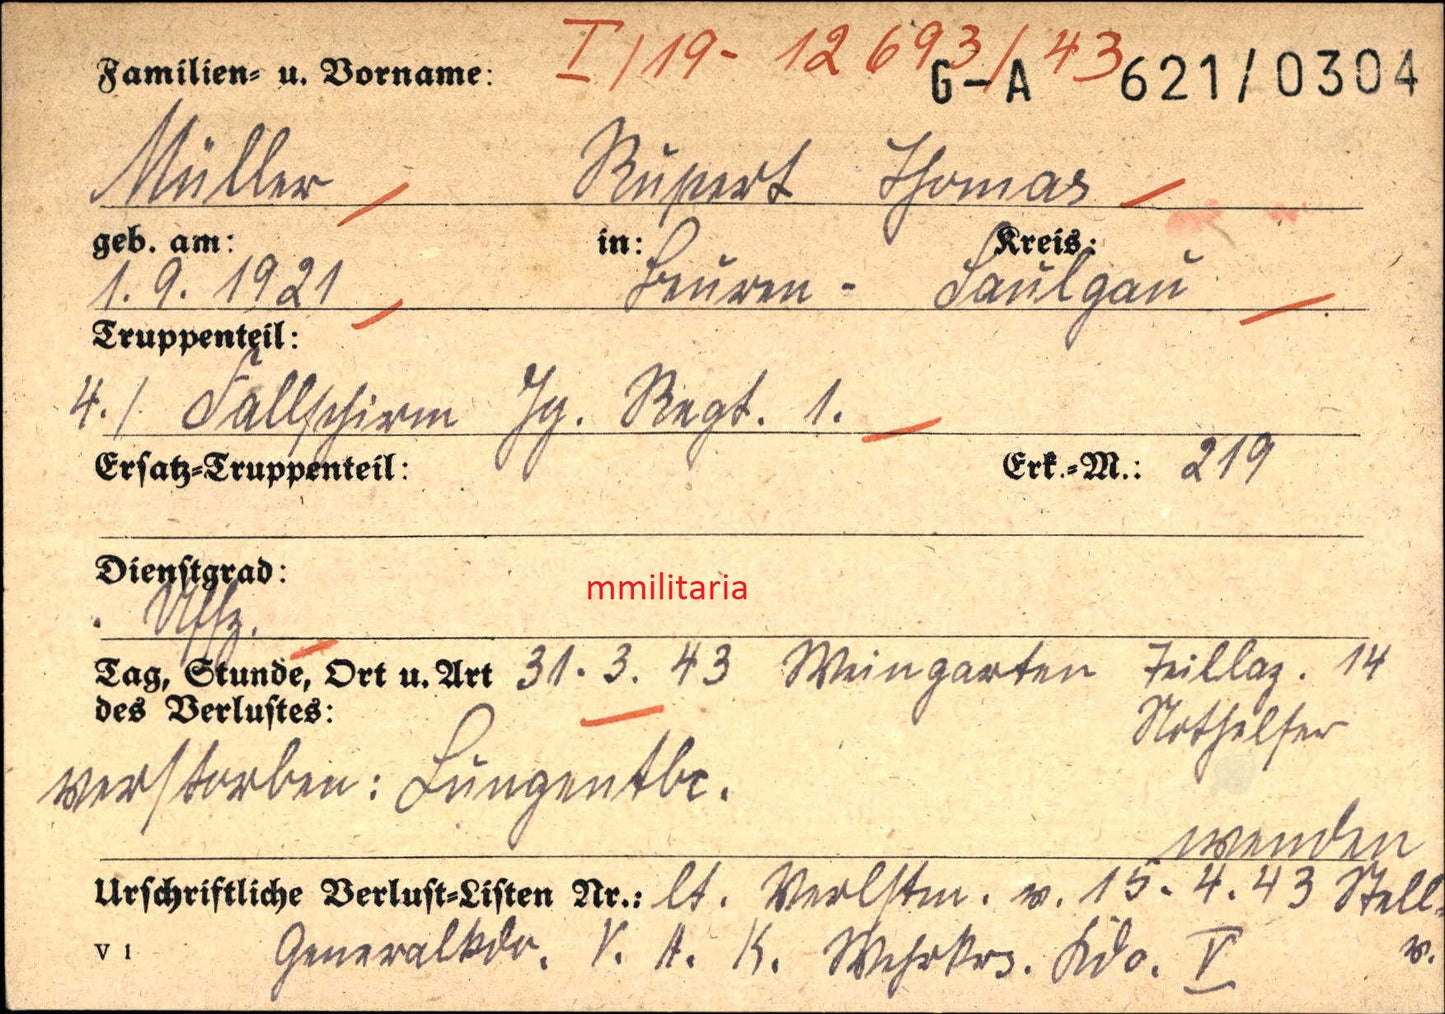 I/19- 12 693/43
Familien- u. Vorname: G-A 621/0304
Müller Rupert Thomas
geb. am: in: Kreis:
1.9.1921 Beuren - Saulgau
Truppenteil:
4./ Fallschirm Jg. Regt. 1.
Ersatz-Truppenteil: Erk.-M.: 219
Dienstgrad:
mmilitaria
. Uffz.
Tag, Stunde, Ort u. Art 31.3.43 Weingarten Teillaz. 14
des Verlustes: Nothelfer
verstorben: Lungentbc.
wenden
Urschriftliche Verlust-Listen Nr.: lt. Verlstm. v. 15.4.43 Stell.
V 1 Generalkdo. V. A. K. Wehrkrs. Kdo. V v.